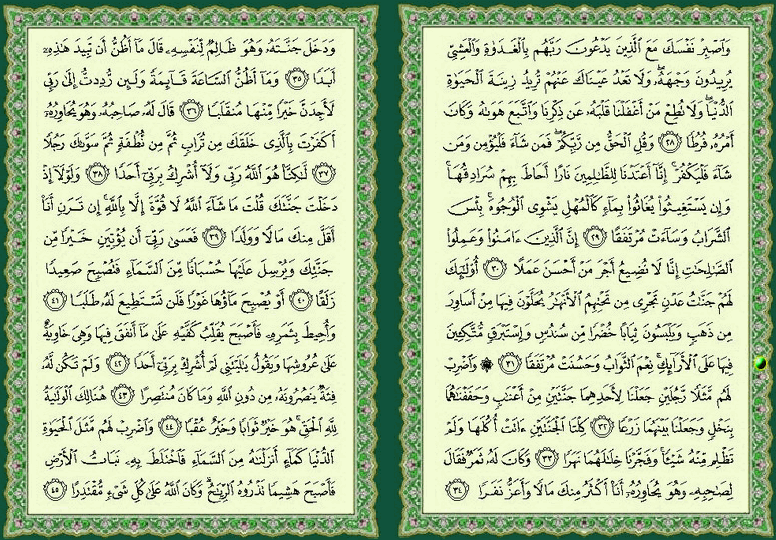 وَٱصْبِرْ نَفْسَكَ مَعَ ٱلَّذِينَ يَدْعُونَ رَبَّهُم بِٱلْغَدَوٰةِ وَٱلْعَشِىِّ
يُرِيدُونَ وَجْهَهُۥ ۖ وَلَا تَعْدُ عَيْنَاكَ عَنْهُمْ تُرِيدُ زِينَةَ ٱلْحَيَوٰةِ
ٱلدُّنْيَا ۖ وَلَا تُطِعْ مَنْ أَغْفَلْنَا قَلْبَهُۥ عَن ذِكْرِنَا وَٱتَّبَعَ هَوَىٰهُ وَكَانَ
أَمْرُهُۥ فُرُطًا ٢٨ وَقُلِ ٱلْحَقُّ مِن رَّبِّكُمْ ۖ فَمَن شَآءَ فَلْيُؤْمِن وَمَن
شَآءَ فَلْيَكْفُرْ ۚ إِنَّآ أَعْتَدْنَا لِلظَّٰلِمِينَ نَارًا أَحَاطَ بِهِمْ سُرَادِقُهَا ۚ
وَإِن يَسْتَغِيثُوا۟ يُغَاثُوا۟ بِمَآءٍ كَٱلْمُهْلِ يَشْوِى ٱلْوُجُوهَ ۚ بِئْسَ
ٱلشَّرَابُ وَسَآءَتْ مُرْتَفَقًا ٢٩ إِنَّ ٱلَّذِينَ ءَامَنُوا۟ وَعَمِلُوا۟
ٱلصَّٰلِحَٰتِ إِنَّا لَا نُضِيعُ أَجْرَ مَنْ أَحْسَنَ عَمَلًا ٣٠ أُو۟لَٰٓئِكَ
لَهُمْ جَنَّٰتُ عَدْنٍ تَجْرِى مِن تَحْتِهِمُ ٱلْأَنْهَٰرُ يُحَلَّوْنَ فِيهَا مِنْ أَسَاوِرَ
مِن ذَهَبٍ وَيَلْبَسُونَ ثِيَابًا خُضْرًا مِّن سُندُسٍ وَإِسْتَبْرَقٍ مُّتَّكِـِٔينَ
فِيهَا عَلَى ٱلْأَرَآئِكِ ۚ نِعْمَ ٱلثَّوَابُ وَحَسُنَتْ مُرْتَفَقًا ٣١ ۞ وَٱضْرِبْ
لَهُم مَّثَلًا رَّجُلَيْنِ جَعَلْنَا لِأَحَدِهِمَا جَنَّتَيْنِ مِنْ أَعْنَٰبٍ وَحَفَفْنَٰهُمَا
بِنَخْلٍ وَجَعَلْنَا بَيْنَهُمَا زَرْعًا ٣٢ كِلْتَا ٱلْجَنَّتَيْنِ ءَاتَتْ أُكُلَهَا وَلَمْ
تَظْلِم مِّنْهُ شَيْـًٔا ۚ وَفَجَّرْنَا خِلَٰلَهُمَا نَهَرًا ٣٣ وَكَانَ لَهُۥ ثَمَرٌ فَقَالَ
لِصَٰحِبِهِۦ وَهُوَ يُحَاوِرُهُۥٓ أَنَا۠ أَكْثَرُ مِنكَ مَالًا وَأَعَزُّ نَفَرًا ٣٤
وَدَخَلَ جَنَّتَهُۥ وَهُوَ ظَالِمٌ لِّنَفْسِهِۦ قَالَ مَآ أَظُنُّ أَن تَبِيدَ هَٰذِهِۦٓ
أَبَدًا ٣٥ وَمَآ أَظُنُّ ٱلسَّاعَةَ قَآئِمَةً وَلَئِن رُّدِدتُّ إِلَىٰ رَبِّى
لَأَجِدَنَّ خَيْرًا مِّنْهَا مُنقَلَبًا ٣٦ قَالَ لَهُۥ صَاحِبُهُۥ وَهُوَ يُحَاوِرُهُۥٓ
أَكَفَرْتَ بِٱلَّذِى خَلَقَكَ مِن تُرَابٍ ثُمَّ مِن نُّطْفَةٍ ثُمَّ سَوَّىٰكَ رَجُلًا
٣٧ لَّٰكِنَّا۠ هُوَ ٱللَّهُ رَبِّى وَلَآ أُشْرِكُ بِرَبِّىٓ أَحَدًا ٣٨ وَلَوْلَآ إِذْ
دَخَلْتَ جَنَّتَكَ قُلْتَ مَا شَآءَ ٱللَّهُ لَا قُوَّةَ إِلَّا بِٱللَّهِ ۚ إِن تَرَنِ أَنَا۠
أَقَلَّ مِنكَ مَالًا وَوَلَدًا ٣٩ فَعَسَىٰ رَبِّىٓ أَن يُؤْتِيَنِ خَيْرًا مِّن
جَنَّتِكَ وَيُرْسِلَ عَلَيْهَا حُسْبَانًا مِّنَ ٱلسَّمَآءِ فَتُصْبِحَ صَعِيدًا
زَلَقًا ٤٠ أَوْ يُصْبِحَ مَآؤُهَا غَوْرًا فَلَن تَسْتَطِيعَ لَهُۥ طَلَبًا ٤١
وَأُحِيطَ بِثَمَرِهِۦ فَأَصْبَحَ يُقَلِّبُ كَفَّيْهِ عَلَىٰ مَآ أَنفَقَ فِيهَا وَهِىَ خَاوِيَةٌ
عَلَىٰ عُرُوشِهَا وَيَقُولُ يَٰلَيْتَنِى لَمْ أُشْرِكْ بِرَبِّىٓ أَحَدًا ٤٢ وَلَمْ تَكُن لَّهُۥ
فِئَةٌ يَنصُرُونَهُۥ مِن دُونِ ٱللَّهِ وَمَا كَانَ مُنتَصِرًا ٤٣ هُنَالِكَ ٱلْوَلَٰيَةُ
لِلَّهِ ٱلْحَقِّ ۚ هُوَ خَيْرٌ ثَوَابًا وَخَيْرٌ عُقْبًا ٤٤ وَٱضْرِبْ لَهُم مَّثَلَ ٱلْحَيَوٰةِ
ٱلدُّنْيَا كَمَآءٍ أَنزَلْنَٰهُ مِنَ ٱلسَّمَآءِ فَٱخْتَلَطَ بِهِۦ نَبَاتُ ٱلْأَرْضِ
فَأَصْبَحَ هَشِيمًا تَذْرُوهُ ٱلرِّيَٰحُ ۗ وَكَانَ ٱللَّهُ عَلَىٰ كُلِّ شَىْءٍ مُّقْتَدِرًا ٤٥